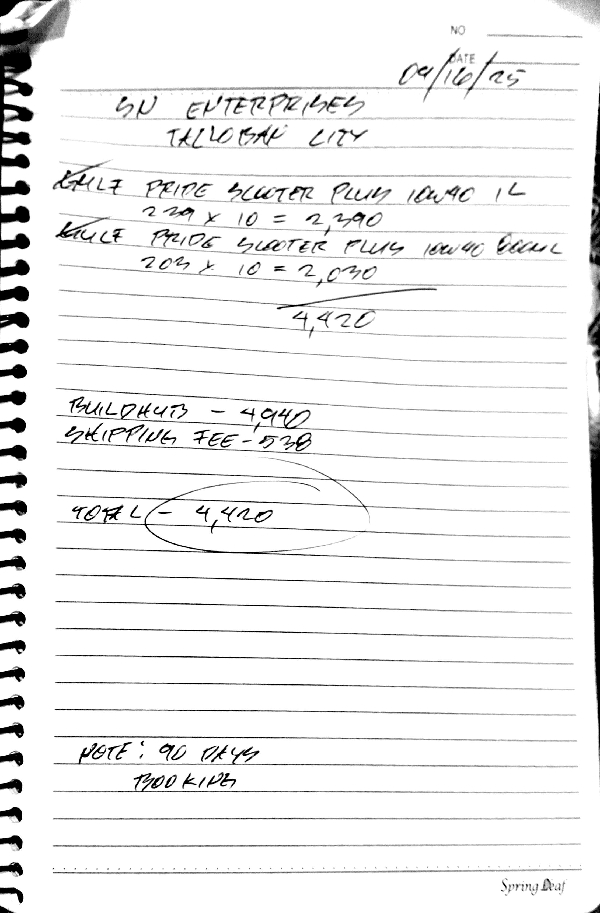 NO
DATE 09/16/25
SN ENTERPRISES
TACLOBAN CITY
GULF PRIDE SCOOTER PLUS 10W40 1L
239 x 10 = 2,390
GULF PRIDE SCOOTER PLUS 10W40 800ML
203 x 10 = 2,030
4,420
BUILDHUB - 4,940
SHIPPING FEE - 538
TOTAL - 4,420
NOTE: 90 DAYS
BOOKING
Spring Leaf